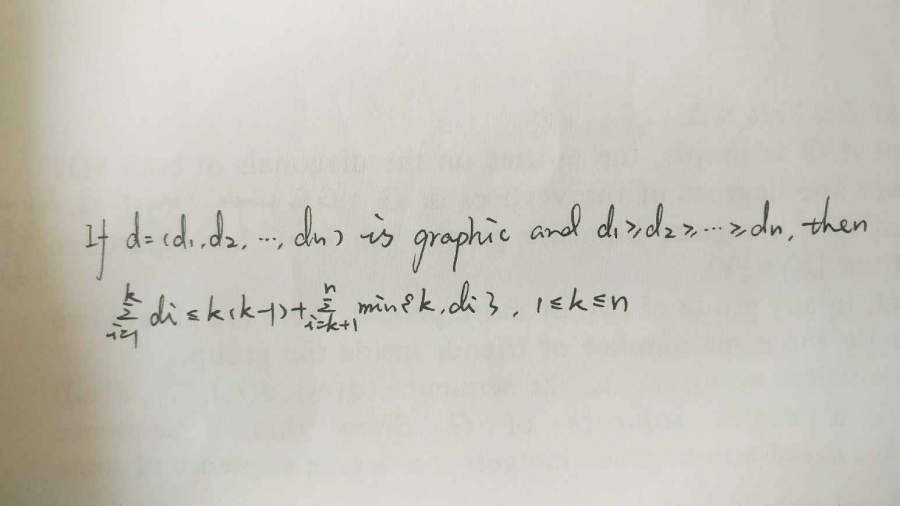 If d=(d1,d2,…,dn) is graphic and d1≥d2≥…≥dn, then
∑_{i=1}^{k} di ≤ k(k-1)+∑_{i=k+1}^{n} min{k,di}, 1≤k≤n